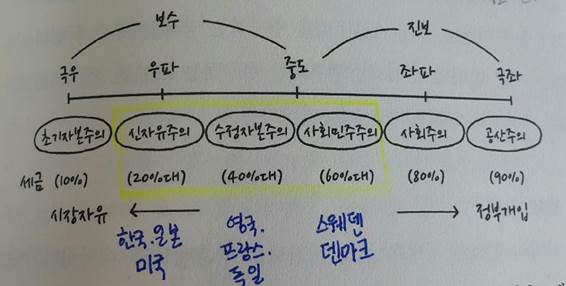 보수 진보
극우 우파 중도 좌파 극좌
초기자본주의 신자유주의 수정자본주의 사회민주주의 사회주의 공산주의
세금 (10%) (20%대) (40%대) (60%대) (80%) (90%)
시장자유 정부개입
한국.일본 영국. 스웨덴
미국 프랑스. 덴마크
독일